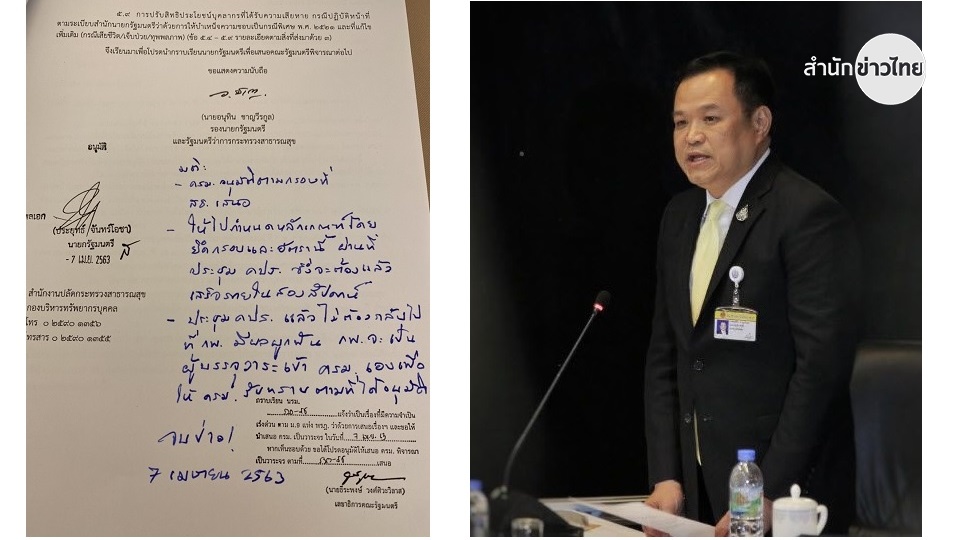 ๕.๙ การปรับสิทธิประโยชน์บุคลากรที่ได้รับความเสียหาย กรณีปฏิบัติหน้าที่
ตามระเบียบสำนักนายกรัฐมนตรีว่าด้วยการให้บำเหน็จความชอบเป็นกรณีพิเศษ พ.ศ. ๒๕๒๑ และที่แก้ไข
เพิ่มเติม (กรณีเสียชีวิต/เจ็บป่วย/ทุพพลภาพ) (ข้อ ๕.๔ - ๕.๙ รายละเอียดตามสิ่งที่ส่งมาด้วย ๓)
จึงเรียนมาเพื่อโปรดนำกราบเรียนนายกรัฐมนตรีเพื่อเสนอคณะรัฐมนตรีพิจารณาต่อไป
ขอแสดงความนับถือ
(นายอนุทิน ชาญวีรกูล)
รองนายกรัฐมนตรี
และรัฐมนตรีว่าการกระทรวงสาธารณสุข
อนุมัติ
พลเอก
(ประยุทธ์ จันทร์โอชา)
นายกรัฐมนตรี
- 7 เม.ย. 2563
สำนักงานปลัดกระทรวงสาธารณสุข
กองบริหารทรัพยากรบุคคล
โทร ๐ ๒๕๙๐ ๑๓๕๖
ทรสาร ๐ ๒๕๙๐ ๑๓๕๕
มติ:
- ครม. อนุมัติตามกรอบที่
สธ. เสนอ
- ให้ไปกำหนดหลักเกณฑ์โดย
ยึดกรอบและอัตรานี้ ผ่านที่
ประชุม คปร. ซึ่งจะต้องแล้ว
เสร็จภายในสองสัปดาห์
- ประชุม คปร. แล้ว ไม่ต้องกลับไป
ที่ กพ. มีผลผูกพัน กพ. จะเป็น
ผู้บรรจุวาระเข้า ครม. เองเพื่อ
ให้ ครม. รับทราบ ตามที่ได้อนุมัติ
จบข่าว!
7 เมษายน 2563
กราบเรียน นรม.
แจ้งว่าเป็นเรื่องที่มีความจำเป็น
เร่งด่วน ตาม ม.๘ แห่ง พรฎ. ว่าด้วยการเสนอเรื่องฯ และขอให้
นำเสนอ ครม. เป็นวาระจร ในวันที่ 7 เม.ย. 63
หากเห็นชอบด้วย ขอได้โปรดอนุมัติให้เสนอ ครม. พิจารณา
เป็นวาระจร ตามที่ รอง-สธ เสนอ
(นายธีระพงษ์ วงศ์ศิวะวิลาส)
เลขาธิการคณะรัฐมนตรี
สำนักข่าวไทย